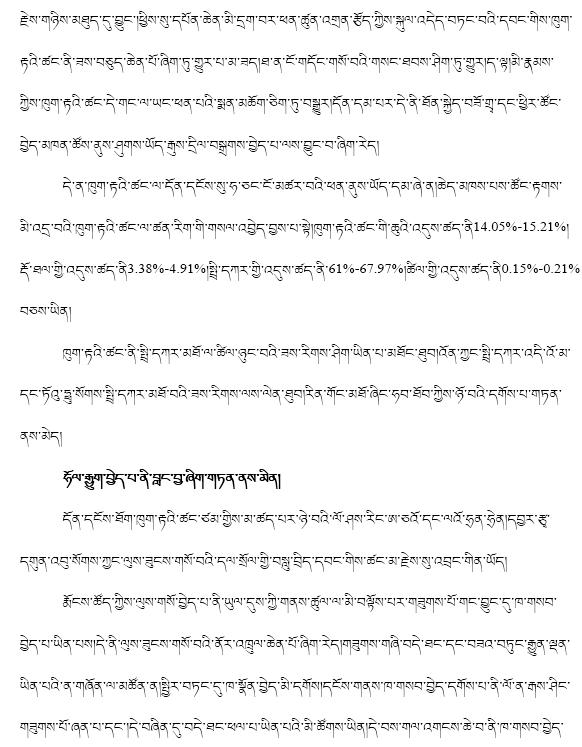 རྗེས་གཉིས་མཐུད་དུ་བྱུང་།ཕྱིས་སུ་དཔོན་ཆེན་མི་དྲག་བར་ཕན་ཚུན་འགྲན་རྩོད་ཀྱིས་སྐུལ་འདེད་བཏང་བའི་དབང་གིས་ཁུག་
རྟའི་ཚང་ནི་ཟས་བཅུད་ཆེན་པོ་ཞིག་ཏུ་གྱུར་པ་མ་ཟད།ཐ་ན་ངོ་གདོང་གསོ་བའི་གསང་ཐབས་ཤིག་ཏུ་གྱུར།ད་ལྟ།མི་རྣམས་
ཀྱིས་ཁུག་རྟའི་ཚང་དེ་གང་ལ་ཡང་ཕན་པའི་སྨན་མཆོག་ཅིག་ཏུ་བསྒྱུར།དོན་དམ་པར་དེ་ནི་ཐོན་སྐྱེད་བཟོ་གྲྭ་དང་ཕྱིར་ཚོང་
བྱེད་མཁན་ཚོས་ནུས་ཤུགས་ཡོད་རྒུས་དྲིལ་བསྒྲགས་བྱེད་པ་ལས་བྱུང་བ་ཞིག་རེད།
དེ་ན་ཁུག་རྟའི་ཚང་ལ་དོན་དངོས་སུ་ཧ་ཅང་ངོ་མཚར་བའི་ཕན་ནུས་ཡོད་དམ་ཞེ་ན།ཆེད་མཁས་པས་ཚོང་རྟགས་
མི་འདྲ་བའི་ཁུག་རྟའི་ཚང་ལ་ཚན་རིག་གི་གསལ་འབྱེད་བྱས་པ་སྟེ།ཁུག་རྟའི་ཚང་གི་ཆུའི་འདུས་ཚད་ནི14.05%-15.21%།
རྡོ་ཐལ་གྱི་འདུས་ཚད་ནི3.38%-4.91%།སྤྲི་དཀར་གྱི་འདུས་ཚད་ནི་61%-67.97%།ཚིལ་གྱི་འདུས་ཚད་ནི0.15%-0.21%
བཅས་ཡིན།
ཁུག་རྟའི་ཚང་ནི་སྤྲི་དཀར་མཐོ་ལ་ཚིལ་ཉུང་བའི་ཟས་རིགས་ཤིག་ཡིན་པ་མཐོང་ཐུབ།འོན་ཀྱང་སྤྲི་དཀར་འདི་འོ་མ་
དང་ཏོའུ་ཧྥུ་སོགས་སྤྲི་དཀར་མཐོ་བའི་ཟས་རིགས་ལས་ལེན་ཐུབ།རིན་གོང་མཐོ་ཞིང་ཧབ་ཐོབ་ཀྱིས་ཉོ་བའི་དགོས་པ་གཏན་
ནས་མེད།
ཧོལ་རྒྱུག་བྱེད་པ་ནི་བླང་བྱ་ཞིག་གཏན་ནས་མིན།
དོན་དངོས་ཐོག་ཁུག་རྟའི་ཚང་ཙམ་གྱིས་མ་ཚད་པར་ཉེ་བའི་ལོ་ཤས་རིང་ཨ་ཅའོ་དང་ལའོ་ཧྲན་ཧྲེན།དབྱར་རྩྭ་
དགུན་འབུ་སོགས་ཀྱང་ལུས་ཟུངས་གསོ་བའི་དལ་སྲོལ་གྱི་བསླུ་བྲིད་དབང་གིས་ཚང་མ་རྗེས་སུ་འབྲང་གིན་ཡོད།
རྨོངས་ཚོད་ཀྱིས་ལུས་གསོ་བྱེད་པ་ནི་ཡུལ་དུས་ཀྱི་གནས་ཚུལ་ལ་མི་བལྟོས་པར་གཟུགས་པོ་གང་བྱུང་དུ་ཁ་གསབ་
བྱེད་པ་ཡིན་པས།དེ་ནི་ལུས་ཟུངས་གསོ་བའི་ནོར་འཁྲུལ་ཆེན་པོ་ཞིག་རེད།གཟུགས་གཞི་བདེ་ཐང་དང་བཟའ་བཏུང་རྒྱུན་ལྡན་
ཡིན་པའི་ན་གཞོན་ལ་མཚོན་ན།སྤྱིར་བཏང་དུ་ཁ་སྣོན་བྱེད་མི་དགོས།དངོས་གནས་ཁ་གསབ་བྱེད་དགོས་པ་ནི་ལོ་ན་རྒས་ཤིང་
གཟུགས་པོ་ཞན་པ་དང་།དེ་བཞིན་དུ་བདེ་ཐང་ཕལ་པ་ཡིན་པའི་མི་ཚོགས་ཡིན།དེ་བས་གལ་འགངས་ཆེ་བ་ནི་ཁ་གསབ་བྱེད་